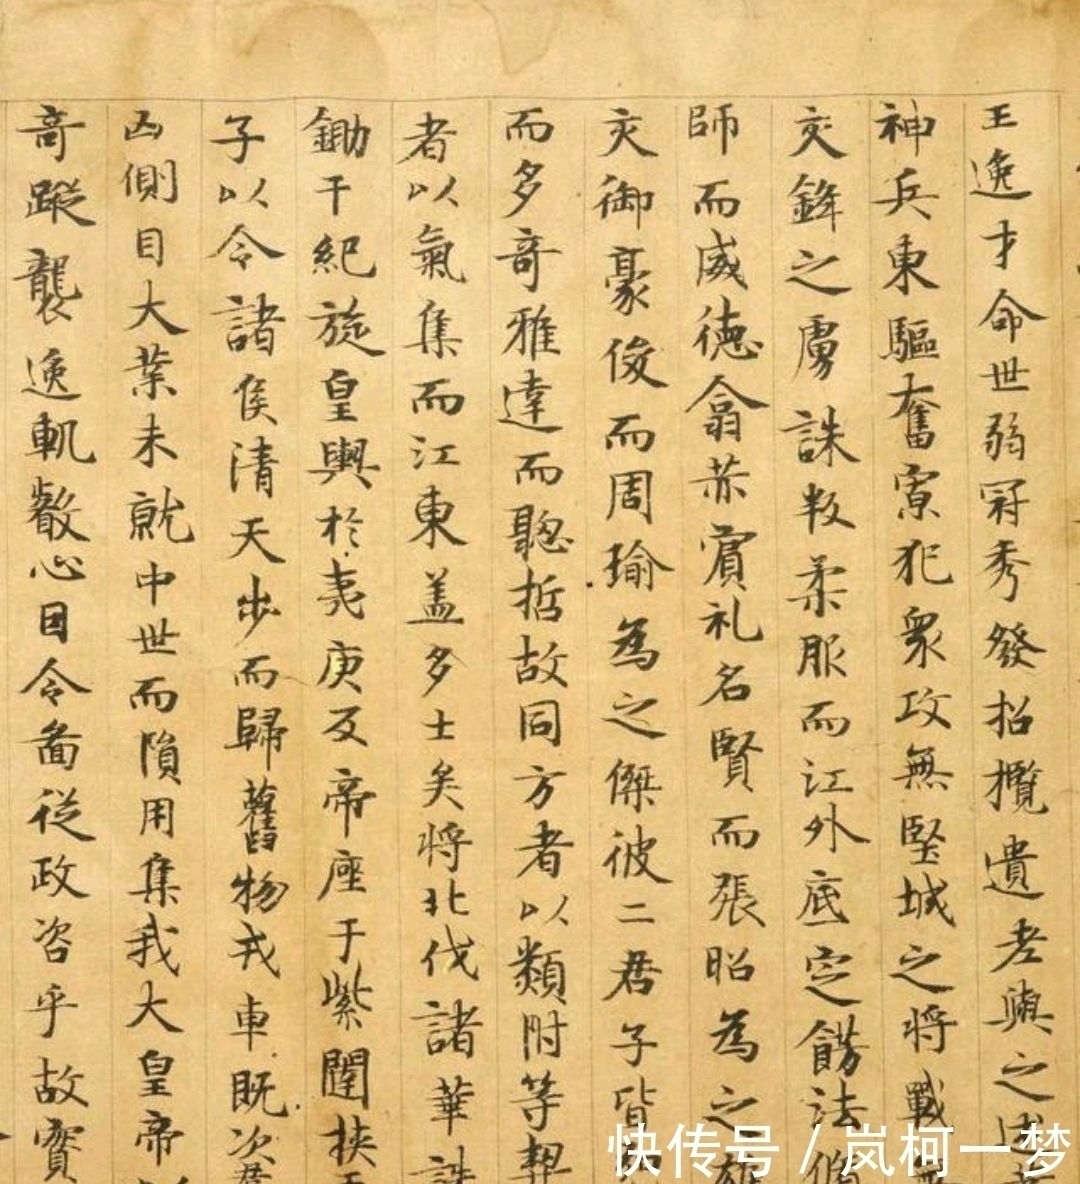 王逸才命世弱冠秀發招攬遺老與之述
神兵東驅奮寡犯衆攻無堅城之將戰無
交鋒之虜誅叛柔服而江外底定飭法脩
師而威德翕赫賓礼名賢而張昭為之雄
交御豪俊而周瑜為之傑彼二君子皆
而多奇雅達而聰哲故同方者以類附等契
者以氣集而江東盖多士矣將北伐諸華誅
鋤干紀旋皇輿於夷庚反帝座于紫闥挾天
子以令諸侯清天步而歸舊物戎車既次羣
凶側目大業未就中世而隕用集我大皇帝
奇蹤襲逸軌叡心因令啚從政咨乎故實
快传号/岚柯一梦